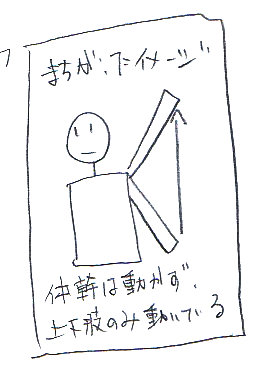 まちがったイメージ
体幹は動かず、
上下肢のみ動いている